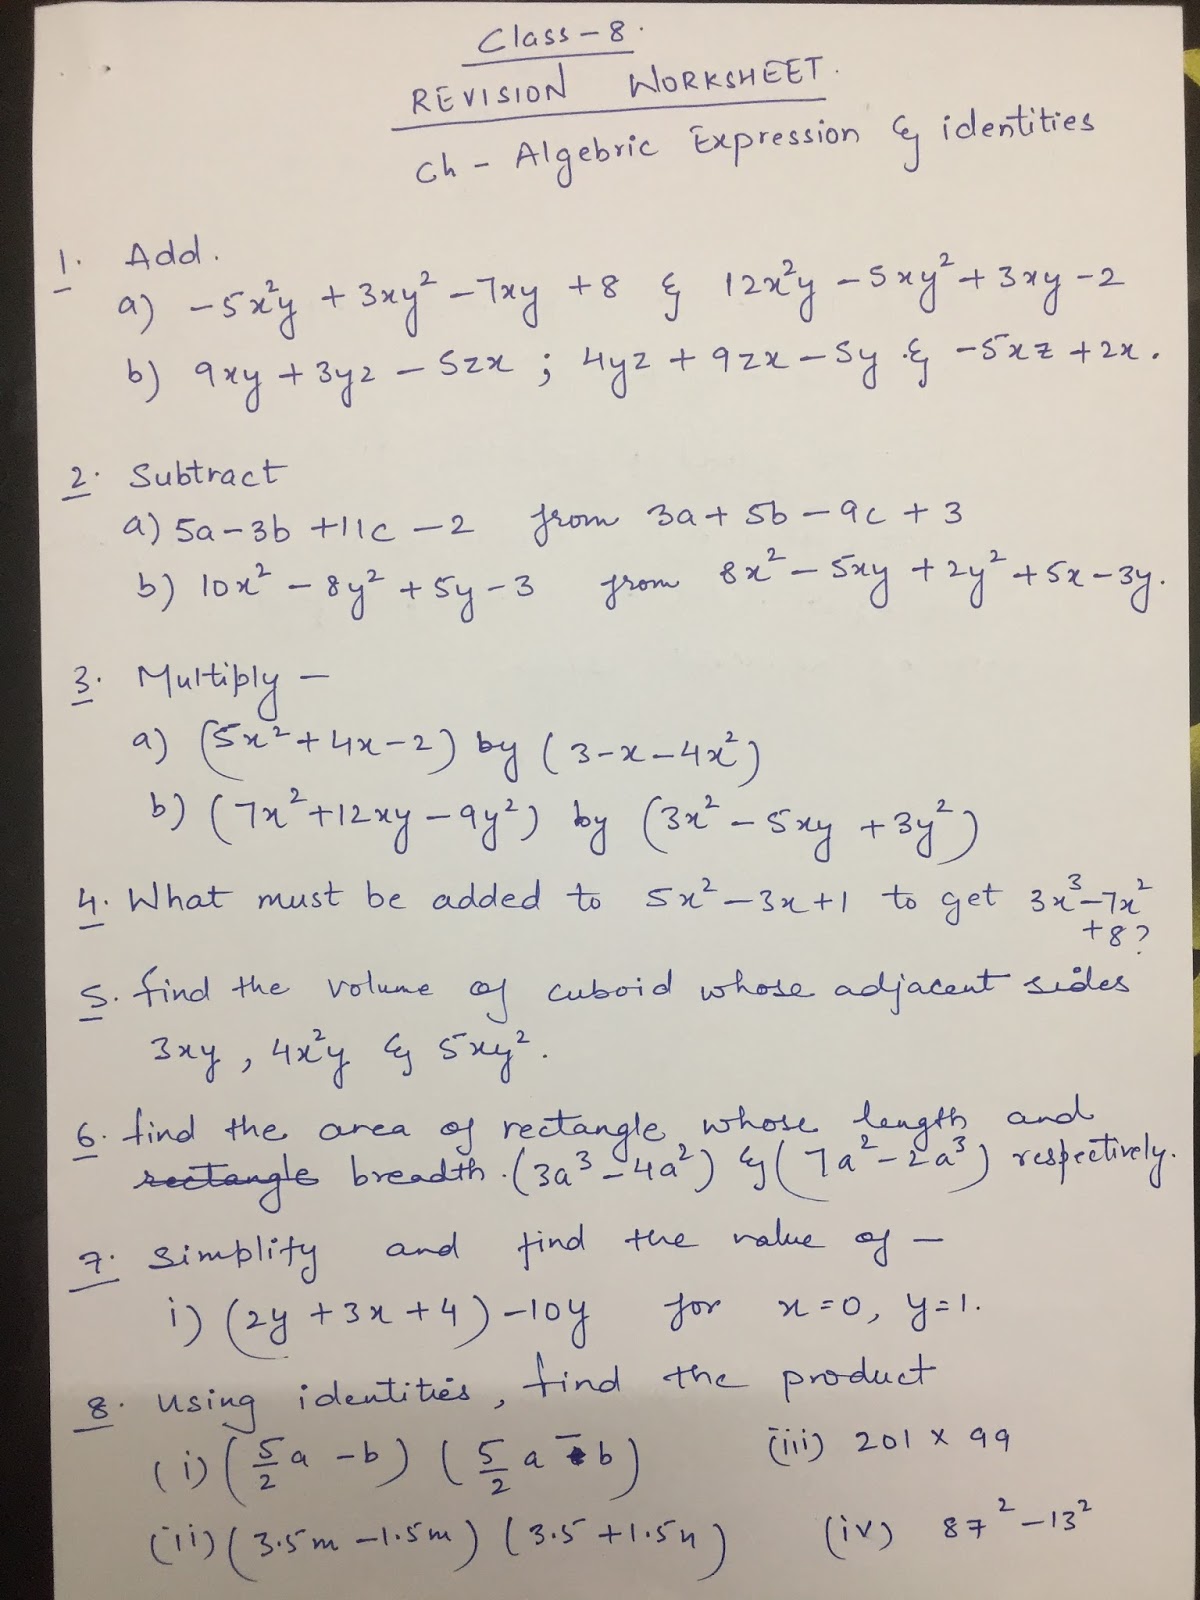 Class-8.
REVISION WORKSHEET.
Ch - Algebric Expression & identities
1. Add.
a) -5x²y + 3xy² - 7xy + 8 & 12x²y - 5xy² + 3xy - 2
b) 9xy + 3yz - 5zx ; 4yz + 9zx - 5y & -5xz + 2x.
2. Subtract
a) 5a - 3b + 11c - 2 from 3a + 5b - 9c + 3
b) 10x² - 8y² + 5y - 3 from 8x² - 5xy + 2y² + 5x - 3y.
3. Multiply -
a) (5x² + 4x - 2) by (3 - x - 4x²)
b) (7x² + 12xy - 9y²) by (3x² - 5xy + 3y²)
4. What must be added to 5x² - 3x + 1 to get 3x³ - 7x²
+ 8?
5. find the volume of cuboid whose adjacent sides
3xy, 4x²y & 5xy².
6. find the area of rectangle whose length and
rectangle breadth. (3a³ - 4a²) & (7a² - 2a³) respectively.
7. Simplify and find the value of -
i) (2y + 3x + 4) - 10y for x = 0, y = 1.
8. using identities, find the product
(i) (5/2 a - b) (5/2 a - b) (iii) 201 x 99
(ii) (3.5m - 1.5m) (3.5 + 1.5n) (iv) 87² - 13²